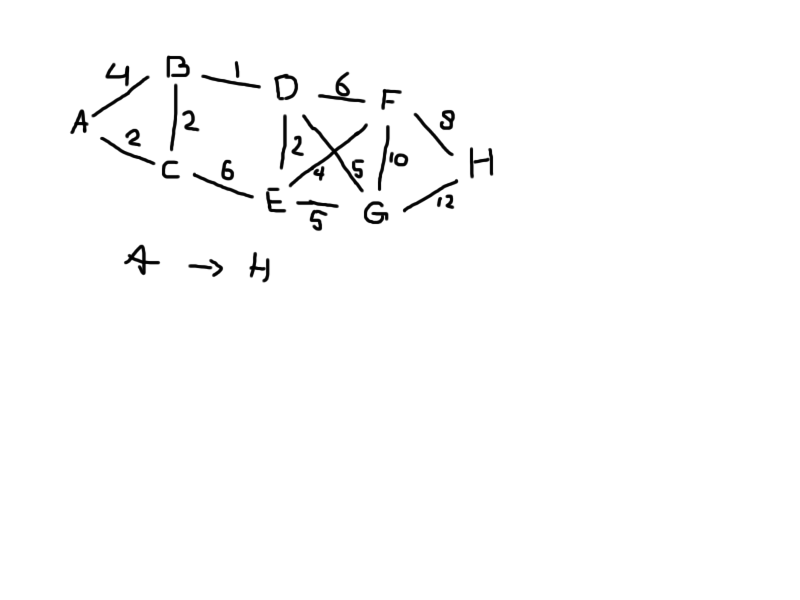 4 B 1 D 6 F 8
A 2 2 2 4 5 10 H
C 6 E 5 G 12
A → H